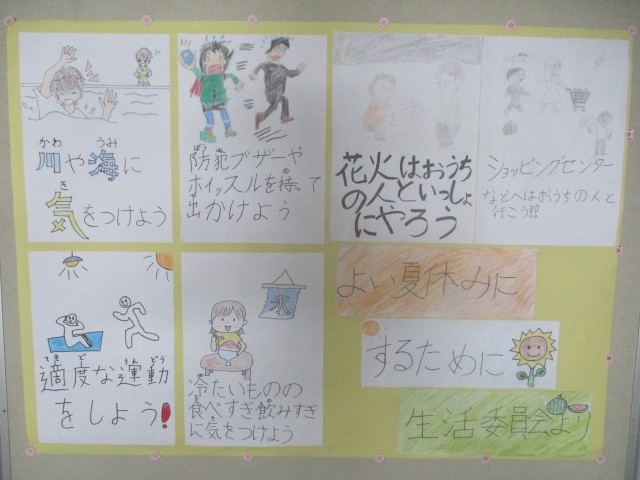 川や海に
気をつけよう
防犯ブザーや
ホイッスルを持って
出かけよう
花火はおうち
の人といっしょ
にやろう
ショッピングセンター
などへはおうちの人と
行こう!!
適度な運動
をしよう!
氷
冷たいものの
食べすぎ飲みすぎ
に気をつけよう
よい夏休みに
するために
生活委員会より